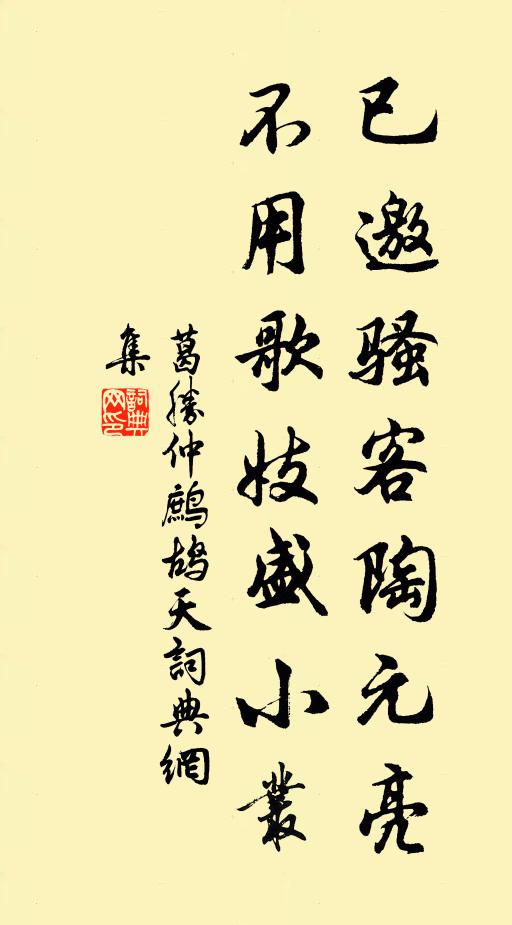 已邀骚客陶元亮
不用歌妓盛小丛
葛勝仲鷓鴣天詞典網
集
詞典网印